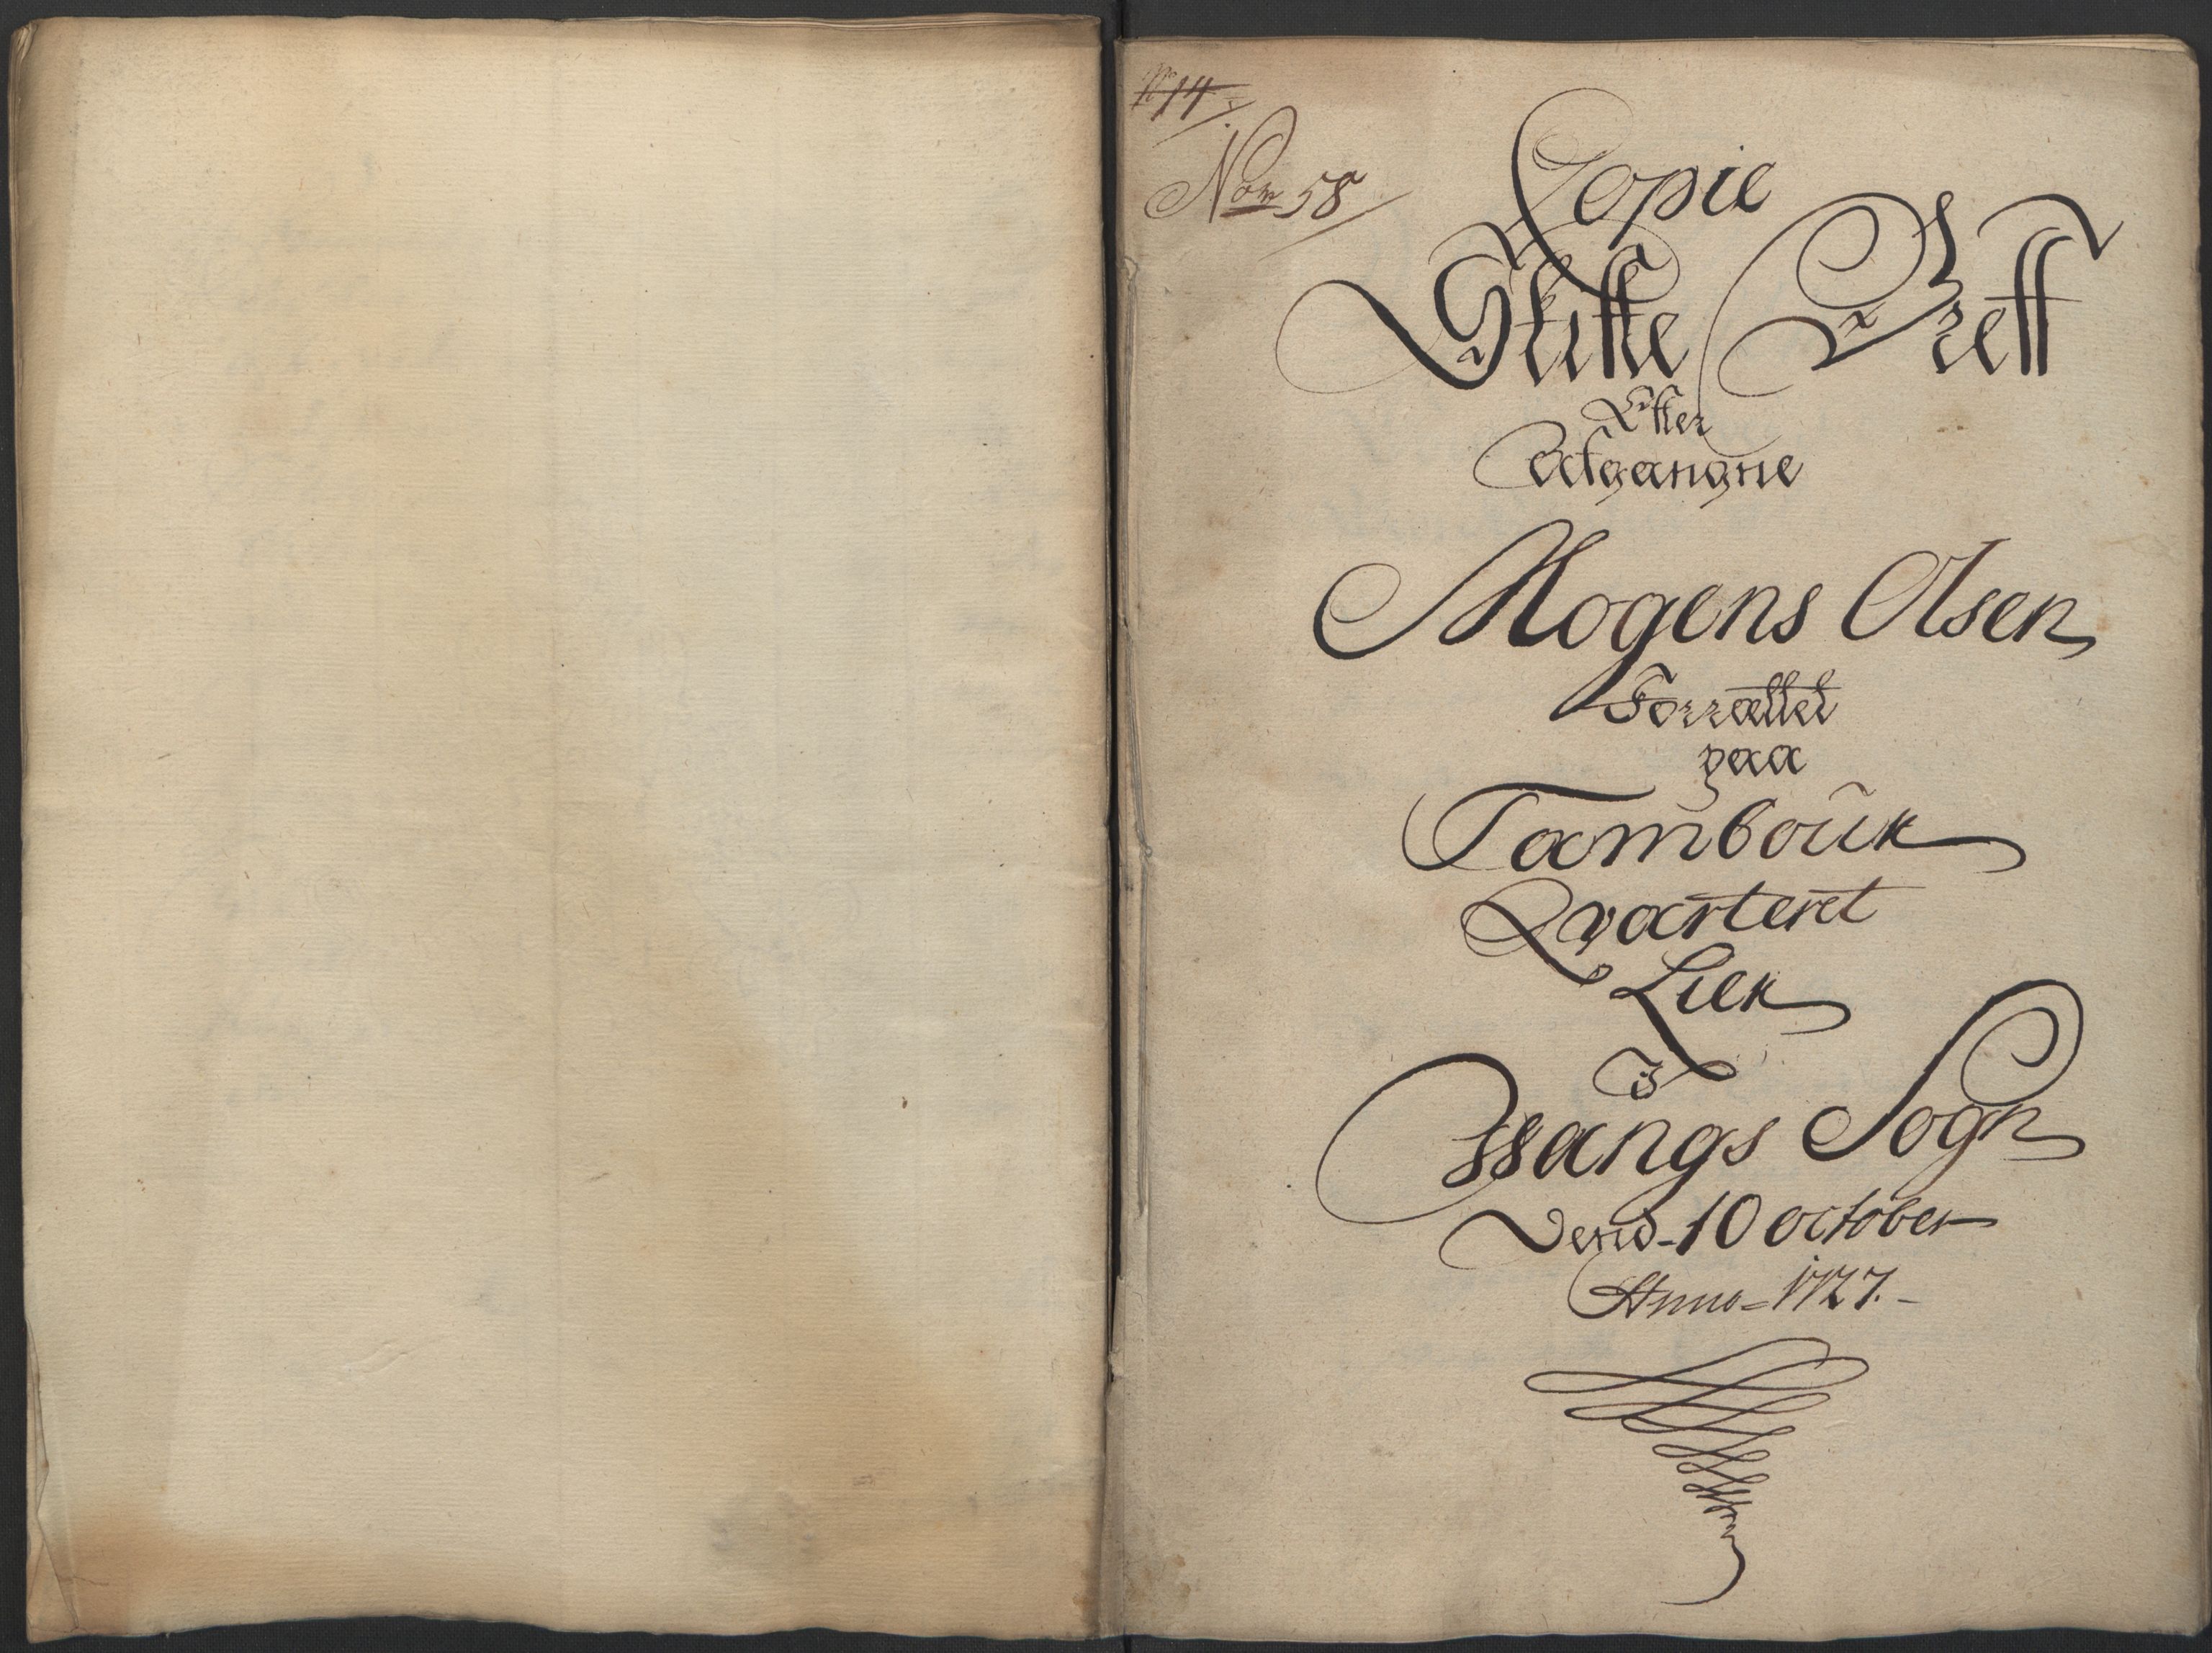 No 14
Nom 58
Copie
Skifte Breff
Efter
Afgangne
Mogens Olsen
Forrættet
paa
Tambour
Qvarteret
Lier
I
Wangs Sogn
Dend 10 october
Anno 1727.